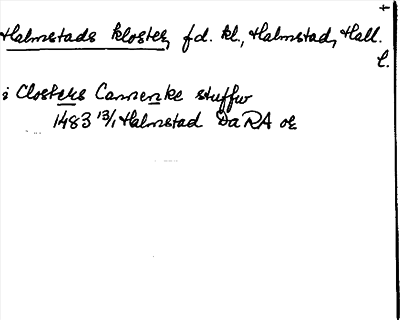 +
Halmstads kloster, fd. kl., Halmstad, Hall.
l.
i Closters Cannenke stuffw
1483 13/1 Halmstad DaRA or